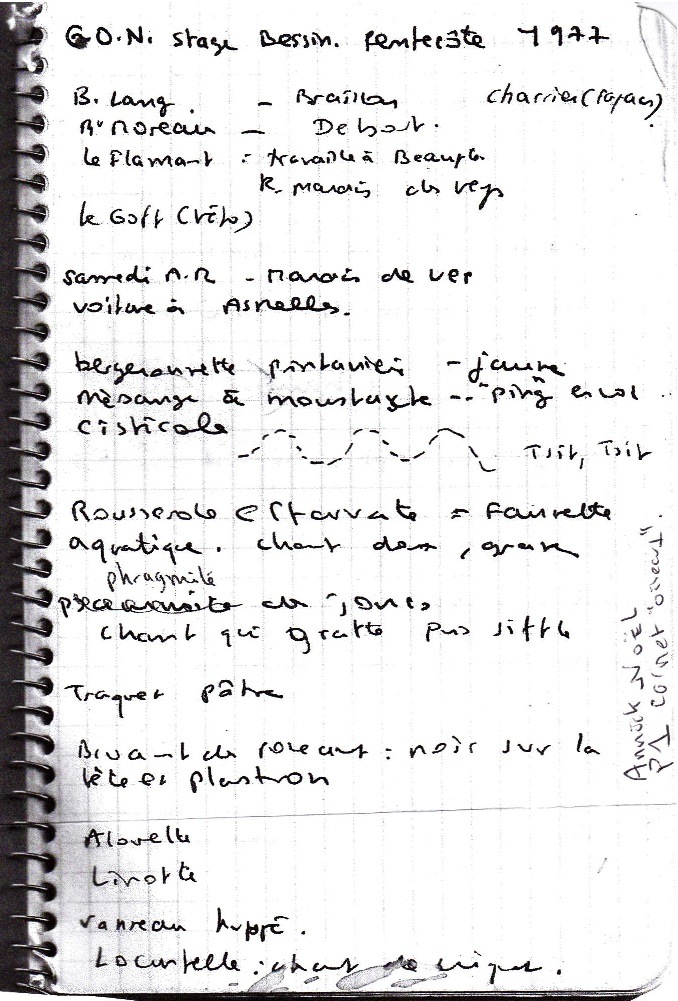 G.O.N. stage Bessin. Pentecôte 1977
B. Lang. - Braillon Charrier (Papacy)
Moreau - Debout.
le Flamant : travaille à
R. Marais de Veys
le Goff (Véto)
samedi A.M - Marais de Ver
voiture à Asnelles.
bergeronnette printanière - jaune
Mésange à moustaxte -- "ping" en vol
cisticole
Tsit, Tsit
Rousserole effarvate = Fauvette
aquatique. chant doux, grave
phragmite
de joncs
chant qui gratte puis siffle
Traquet pâtre
Bruant de roseaux : noir sur la
tête et plastron
Alouette
Linotte
vanneau huppé.
Locustelle : chant de criquet.
Annick Noël
P1 carnet "oiseaux".